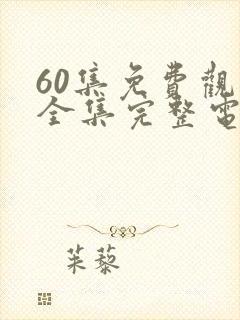 60集免費觀
全集完整電
茱藜